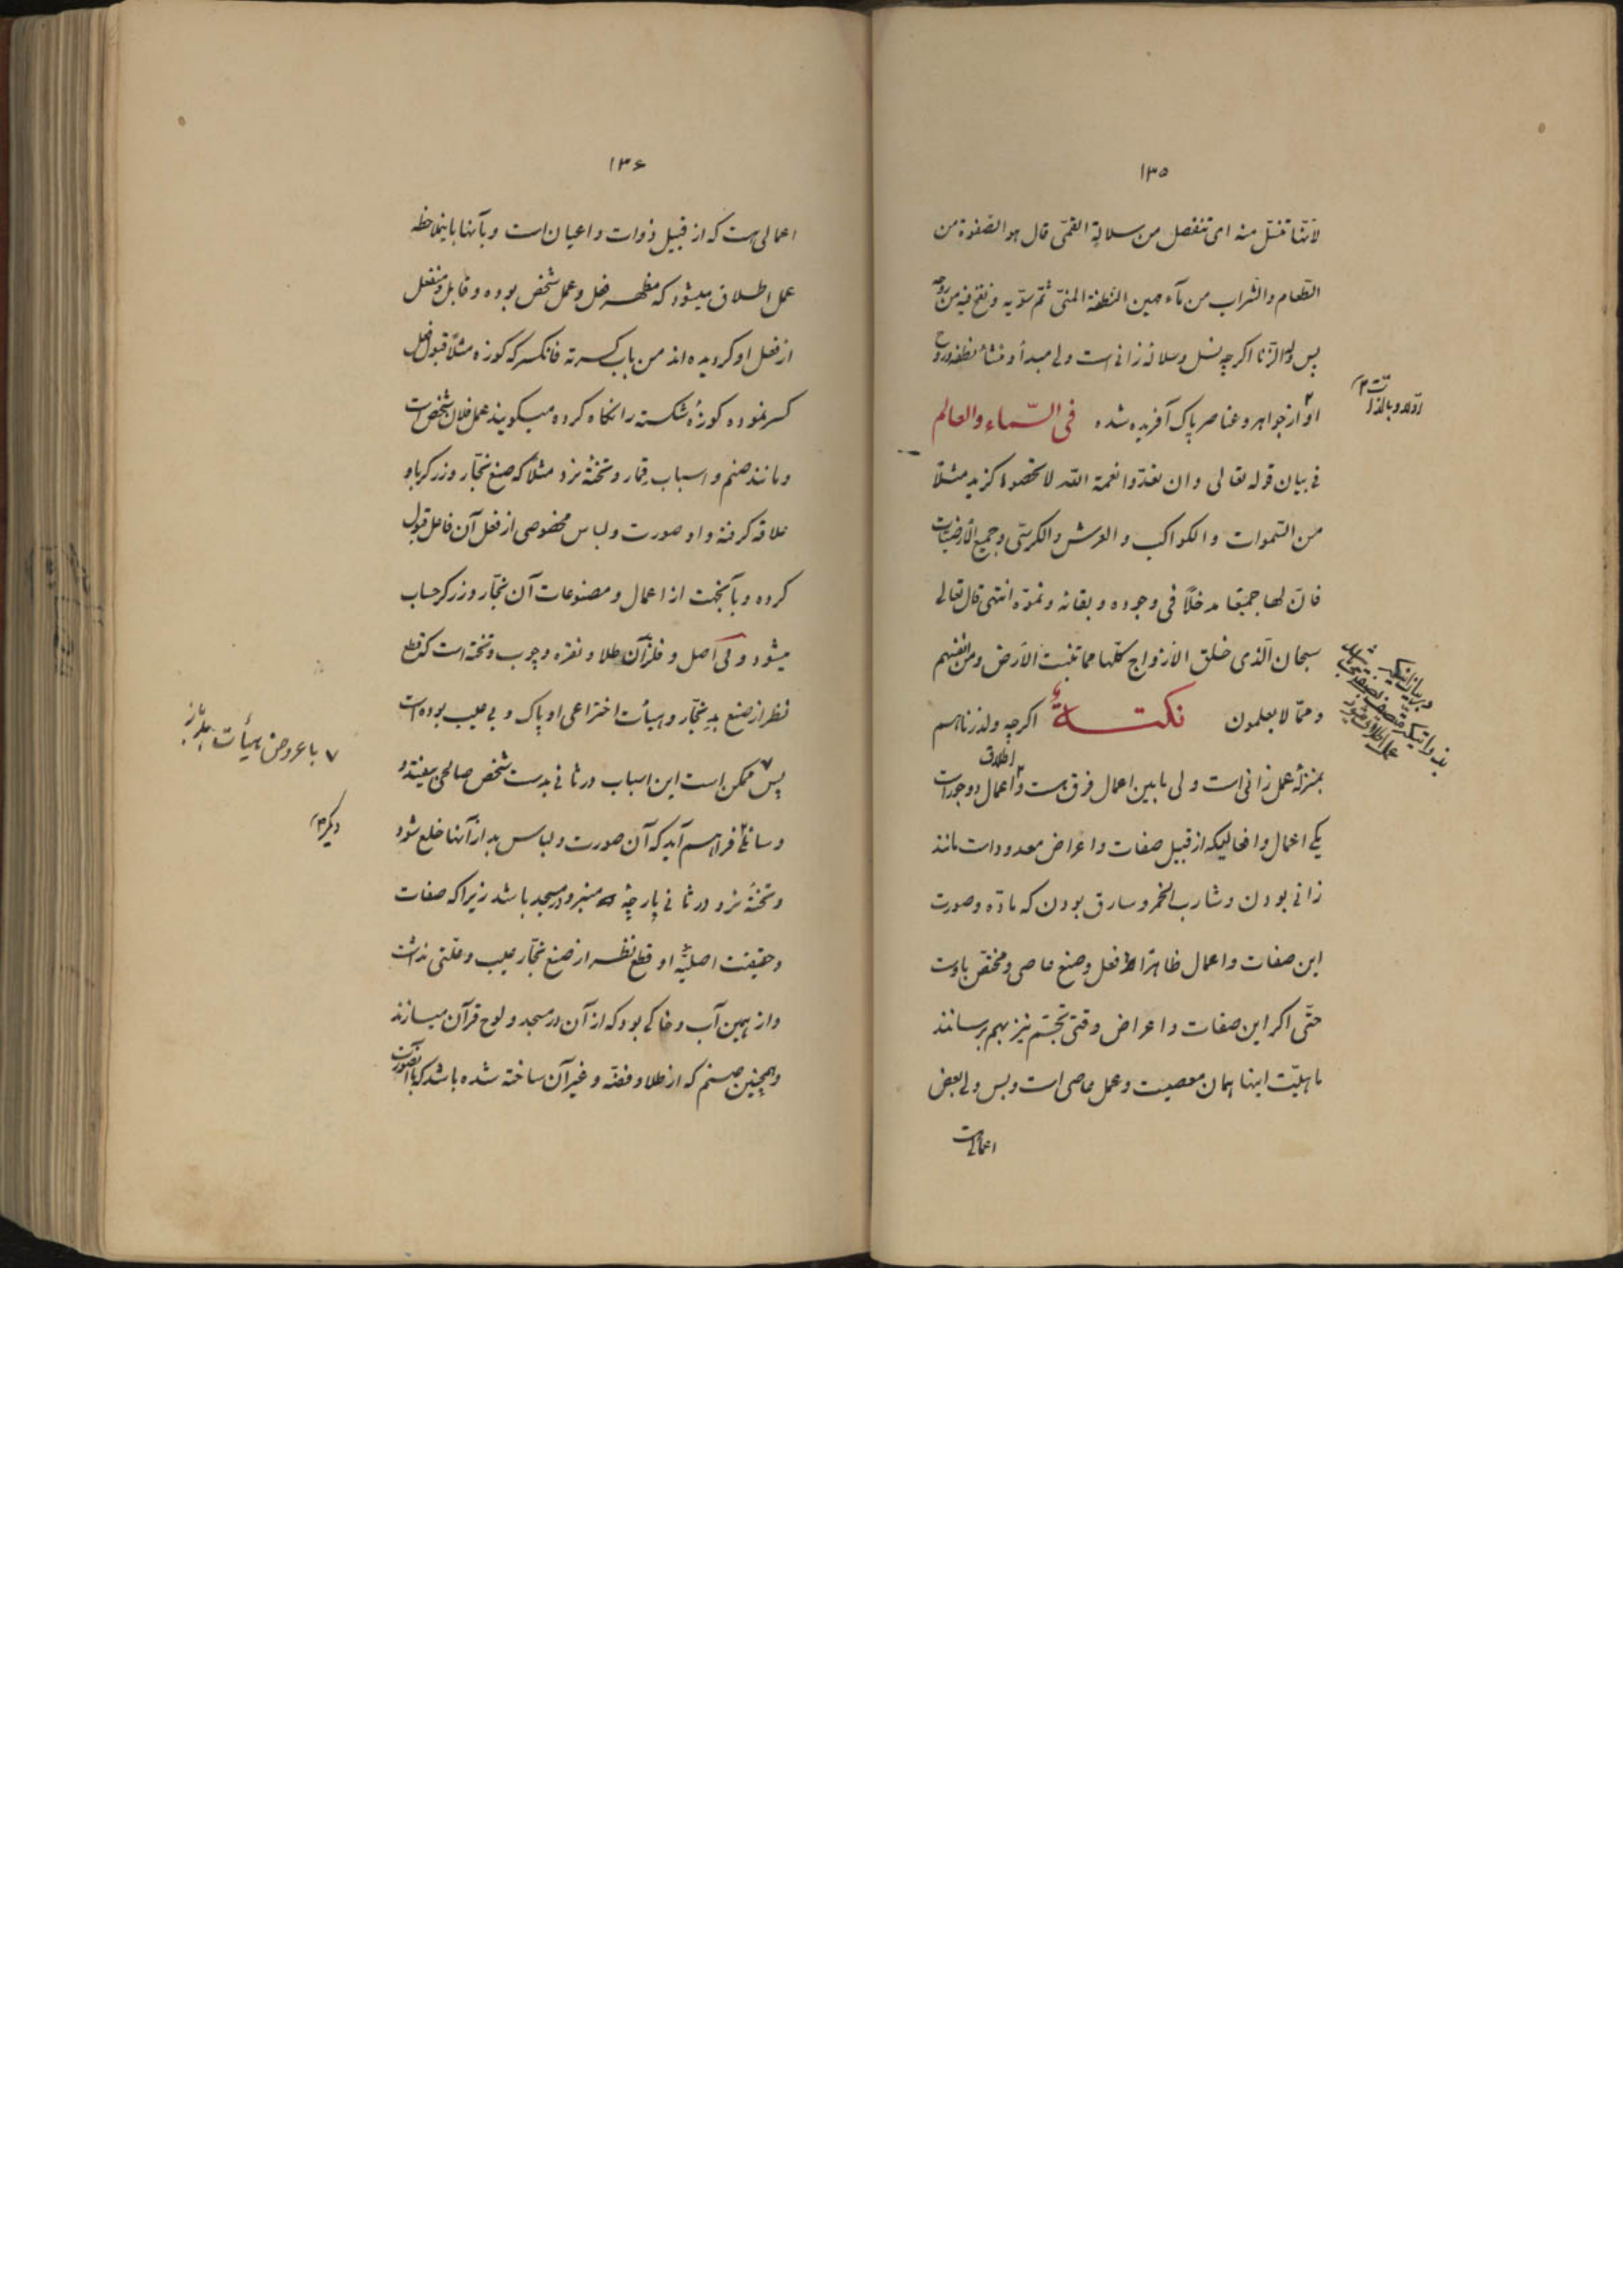 ۱۳۵
لانّها تنسّل منه ای تنفصل من سلالة القمّی قال هو الصّفوة من
الطّعام والشّراب من مآء مهین النّطفة المنیّ ثمّ سوّیه ونفخ فیه من روحه
پس ولد الزّنا اگرچه نسل وسلالهٔ زانی است ولی مبدأ و منشأ نطفه وروح
او از جواهر وعناصر پاک آفریده شده فی السّماء والعالم
فی بیان قوله تعالی وان تعدّوا نعمة اللّه لا تحصوها کزید مثلاً
من السّموات والکواکب والعرش والکرسیّ وجمیع الأرضیات
فانّ لها جمیعا مدخلاً فی وجوده وبقائه ونموّه انتهی قال تعالی
سبحان الّذی خلق الازواج کلّها مما تنبت الأرض ومن انفسهم
وممّا لا یعلمون نکتة اگرچه ولد زنا هم
اطلاق
بمنزلهٔ عمل زانی است ولی مابین اعمال فرق هست واعمال دو جور است
یکی اعمال وافعالیکه از قبیل صفات واعراض معدود است مانند
زانی بودن وشارب الخمر وسارق بودن که مادّه وصورت
این صفات واعمال ظاهراً فعل وصنع عاصی ومختصّ باوست
حتّی اگر این صفات واعراض وقتی تجسّم نیز بهم برسانند
ماهیّت اینها همان معصیت وعمل عاصی است وبس ولی بعض
اعمالی است
اوّلا وبالذّات
۱۳۶
اعمالی هست که از قبیل ذوات واعیان است وبآنها باینملاحظه
عمل اطلاق میشود که مظهر فعل وعمل شخص بوده وقابل ومنفعل
از فعل او گردیده اند من باب کسرته فانکسر که کوزه مثلاً قبول فعل
کسر نموده کوزهٔ شکسته را نگاه کرده میگویند عمل فلان شخص است
ومانند صنم واسباب قمار وتختهٔ نرد مثلا که صنع نجّار وزرگر باو
علاقه گرفته واو صورت ولباس مخصوصی از فعل آن فاعل قبول
کرده وبآنجهت از اعمال ومصنوعات آن نجّار وزرگر حساب
میشود ولی اصل وفلزّ آن طلا ونقره وچوب وتخته است که قطع
نظر از صنع بد نجّار وهیأت اختراعی او پاک وبی عیب بوده است
پس ممکن است این اسباب در ثانی بدست شخص صالحی بیفتد و
وسائلی فراهم آید که آن صورت ولباس بد از آنها خلع شود
وتختهٔ نرد در ثانی پارچهٔ منبر ودر مسجد باشد زیرا که صفات
وحقیقت اصلیّهٔ او قطع نظر از صنع نجّار عیب وعلّتی نداشت
واز همین آب وخاکی بود که از آن در مسجد ولوح قرآن میسازند
وهمچنین صنم که از طلا وفضّه وغیر آن ساخته شده باشد که بآنصورت
۷ با عروض هیأت
دیگر